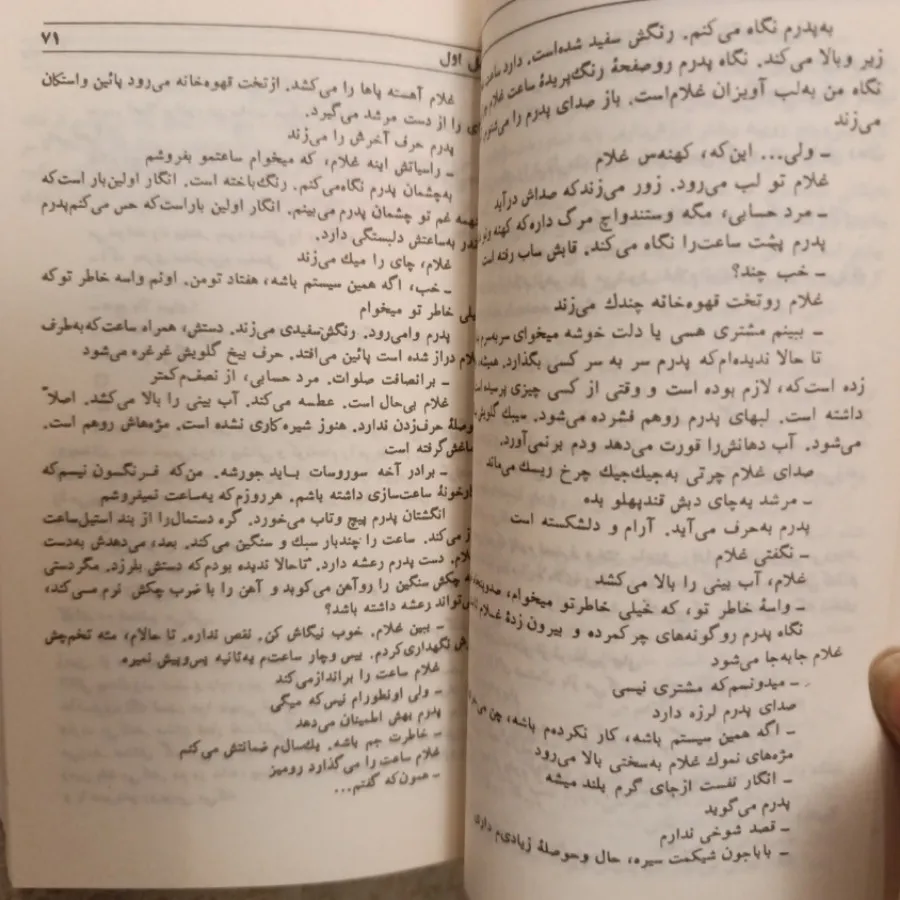 به‌پدرم نگاه می‌کنم. رنگش سفید شده‌است. دارد ساعت
زیر وبالا می‌کند. نگاه پدرم روصفحهٔ رنگ‌پریدهٔ ساعت غلام
نگاه من به‌لب آویزان غلام‌است. باز صدای پدرم را می‌شنوم
می‌زند
ـ ولی... این‌که، کهنه‌س غلام
غلام تو لب می‌رود. زور می‌زندکه صداش درآید
ـ مرد حسابی، مگه وستندواچ مرگ داره‌که کهنه ونو
پدرم پشت ساعت‌را نگاه می‌کند. قابش ساب رفته است
ـ خب چند؟
غلام روتخت قهوه‌خانه چندك می‌زند
ـ ببینم مشتری هسی یا دلت خوشه میخوای سربه‌سرم
تا حالا ندیده‌ام‌که پدرم سر به سر کسی بگذارد. همیشه
زده است‌که، لازم بوده است و وقتی از کسی چیزی پرسیده
داشته است. لبهای پدرم روهم فشرده می‌شود. سیبك گلویش
می‌شود. آب دهانش‌را قورت می‌دهد ودم برنمی‌آورد.
صدای غلام چرتی به‌جیك‌جیك چرخ ریسك می‌ماند
ـ مرشد یه‌چای دبش قندپهلو بده
پدرم به‌حرف می‌آید. آرام و دلشکسته است
ـ نگفتی غلام
غلام، آب بینی را بالا می‌کشد
ـ واسهٔ خاطر تو، که خیلی خاطرتو میخوام،
نگاه پدرم روگونه‌های چرکمرده و بیرون زدهٔ غلام
غلام جابه‌جا می‌شود
ـ میدونسم‌که مشتری نیسی
صدای پدرم لرزه دارد
ـ اگه همین سیستم باشه، کار نکرده‌م باشه،
مژه‌های نموك غلام به‌سختی بالا می‌رود
ـ انگار نفست ازجای گرم بلند میشه
پدرم می‌گوید
ـ قصد شوخی ندارم
ـ باباجون شیکمت سیره، حال وحوصلهٔ زیادی‌م داری
۷۱
اول
غلام آهسته پاها را می‌کشد. ازتخت قهوه‌خانه می‌رود پائین واستکان
را از دست مرشد می‌گیرد.
پدرم حرف آخرش را می‌زند
ـ راسیاتش اینه غلام، که میخوام ساعتمو بفروشم
به‌چشمان پدرم نگاه‌می‌کنم. رنگ‌باخته است. انگار اولین‌بار است‌که
همه غم تو چشمان پدرم می‌بینم. انگار اولین باراست‌که حس می‌کنم‌پدرم
به‌ساعتش دلبستگی دارد.
غلام، چای را میك می‌زند
ـ خب، اگه همین سیستم باشه، هفتاد تومن. اونم واسه خاطر توکه
خاطر تو میخوام
پدرم وامی‌رود. رنگش‌سفیدی می‌زند. دستش، همراه ساعت‌که‌به‌طرف
دراز شده است پائین می‌افتد. حرف بیخ گلویش غرغره می‌شود
ـ برانصافت صلوات. مرد حسابی، از نصفم‌کمتر
غلام بی‌حال است. عطسه می‌کند. آب بینی را بالا می‌کشد. اصلاً
حوصلهٔ حرف‌زدن ندارد. هنوز شیره‌کاری نشده است. مژه‌هاش روهم است.
گرفته است
ـ برادر آخه سوروسات باید جورشه. من‌که فرنگسون نیسم‌که
ساعت‌سازی داشته باشم. هرروزم‌که یه‌ساعت نمیفروشم
انگشتان پدرم پیچ وتاب می‌خورد. گره دستمال‌را از بند استیل‌ساعت
می‌کند. ساعت را چندبار سبك و سنگین می‌کند. بعد، می‌دهدش به‌دست
دست پدرم رعشه دارد. تاحالا ندیده بودم‌که دستش بلرزد. مگردستی
چکش سنگین را روآهن می‌کوبد و آهن را با ضرب چکش نرم می‌کند،
می‌تواند رعشه داشته باشد؟
ـ ببین غلام. خوب نیگاش کن. نقص نداره. تا حالام، مثه تخم‌چش
نگهداری‌کردم. بیس وچار ساعت‌م یه‌ثانیه پس‌وپیش نمیره
غلام ساعت را براندازمی‌کند
ـ ولی اونطورام نیس‌که میگی
پدرم بهش اطمینان می‌دهد
ـ خاطرت جم باشه. یك‌سال‌م ضمانتش می‌کنم
غلام ساعت را می‌گذارد رومیز
ـ همون‌که گفتم...